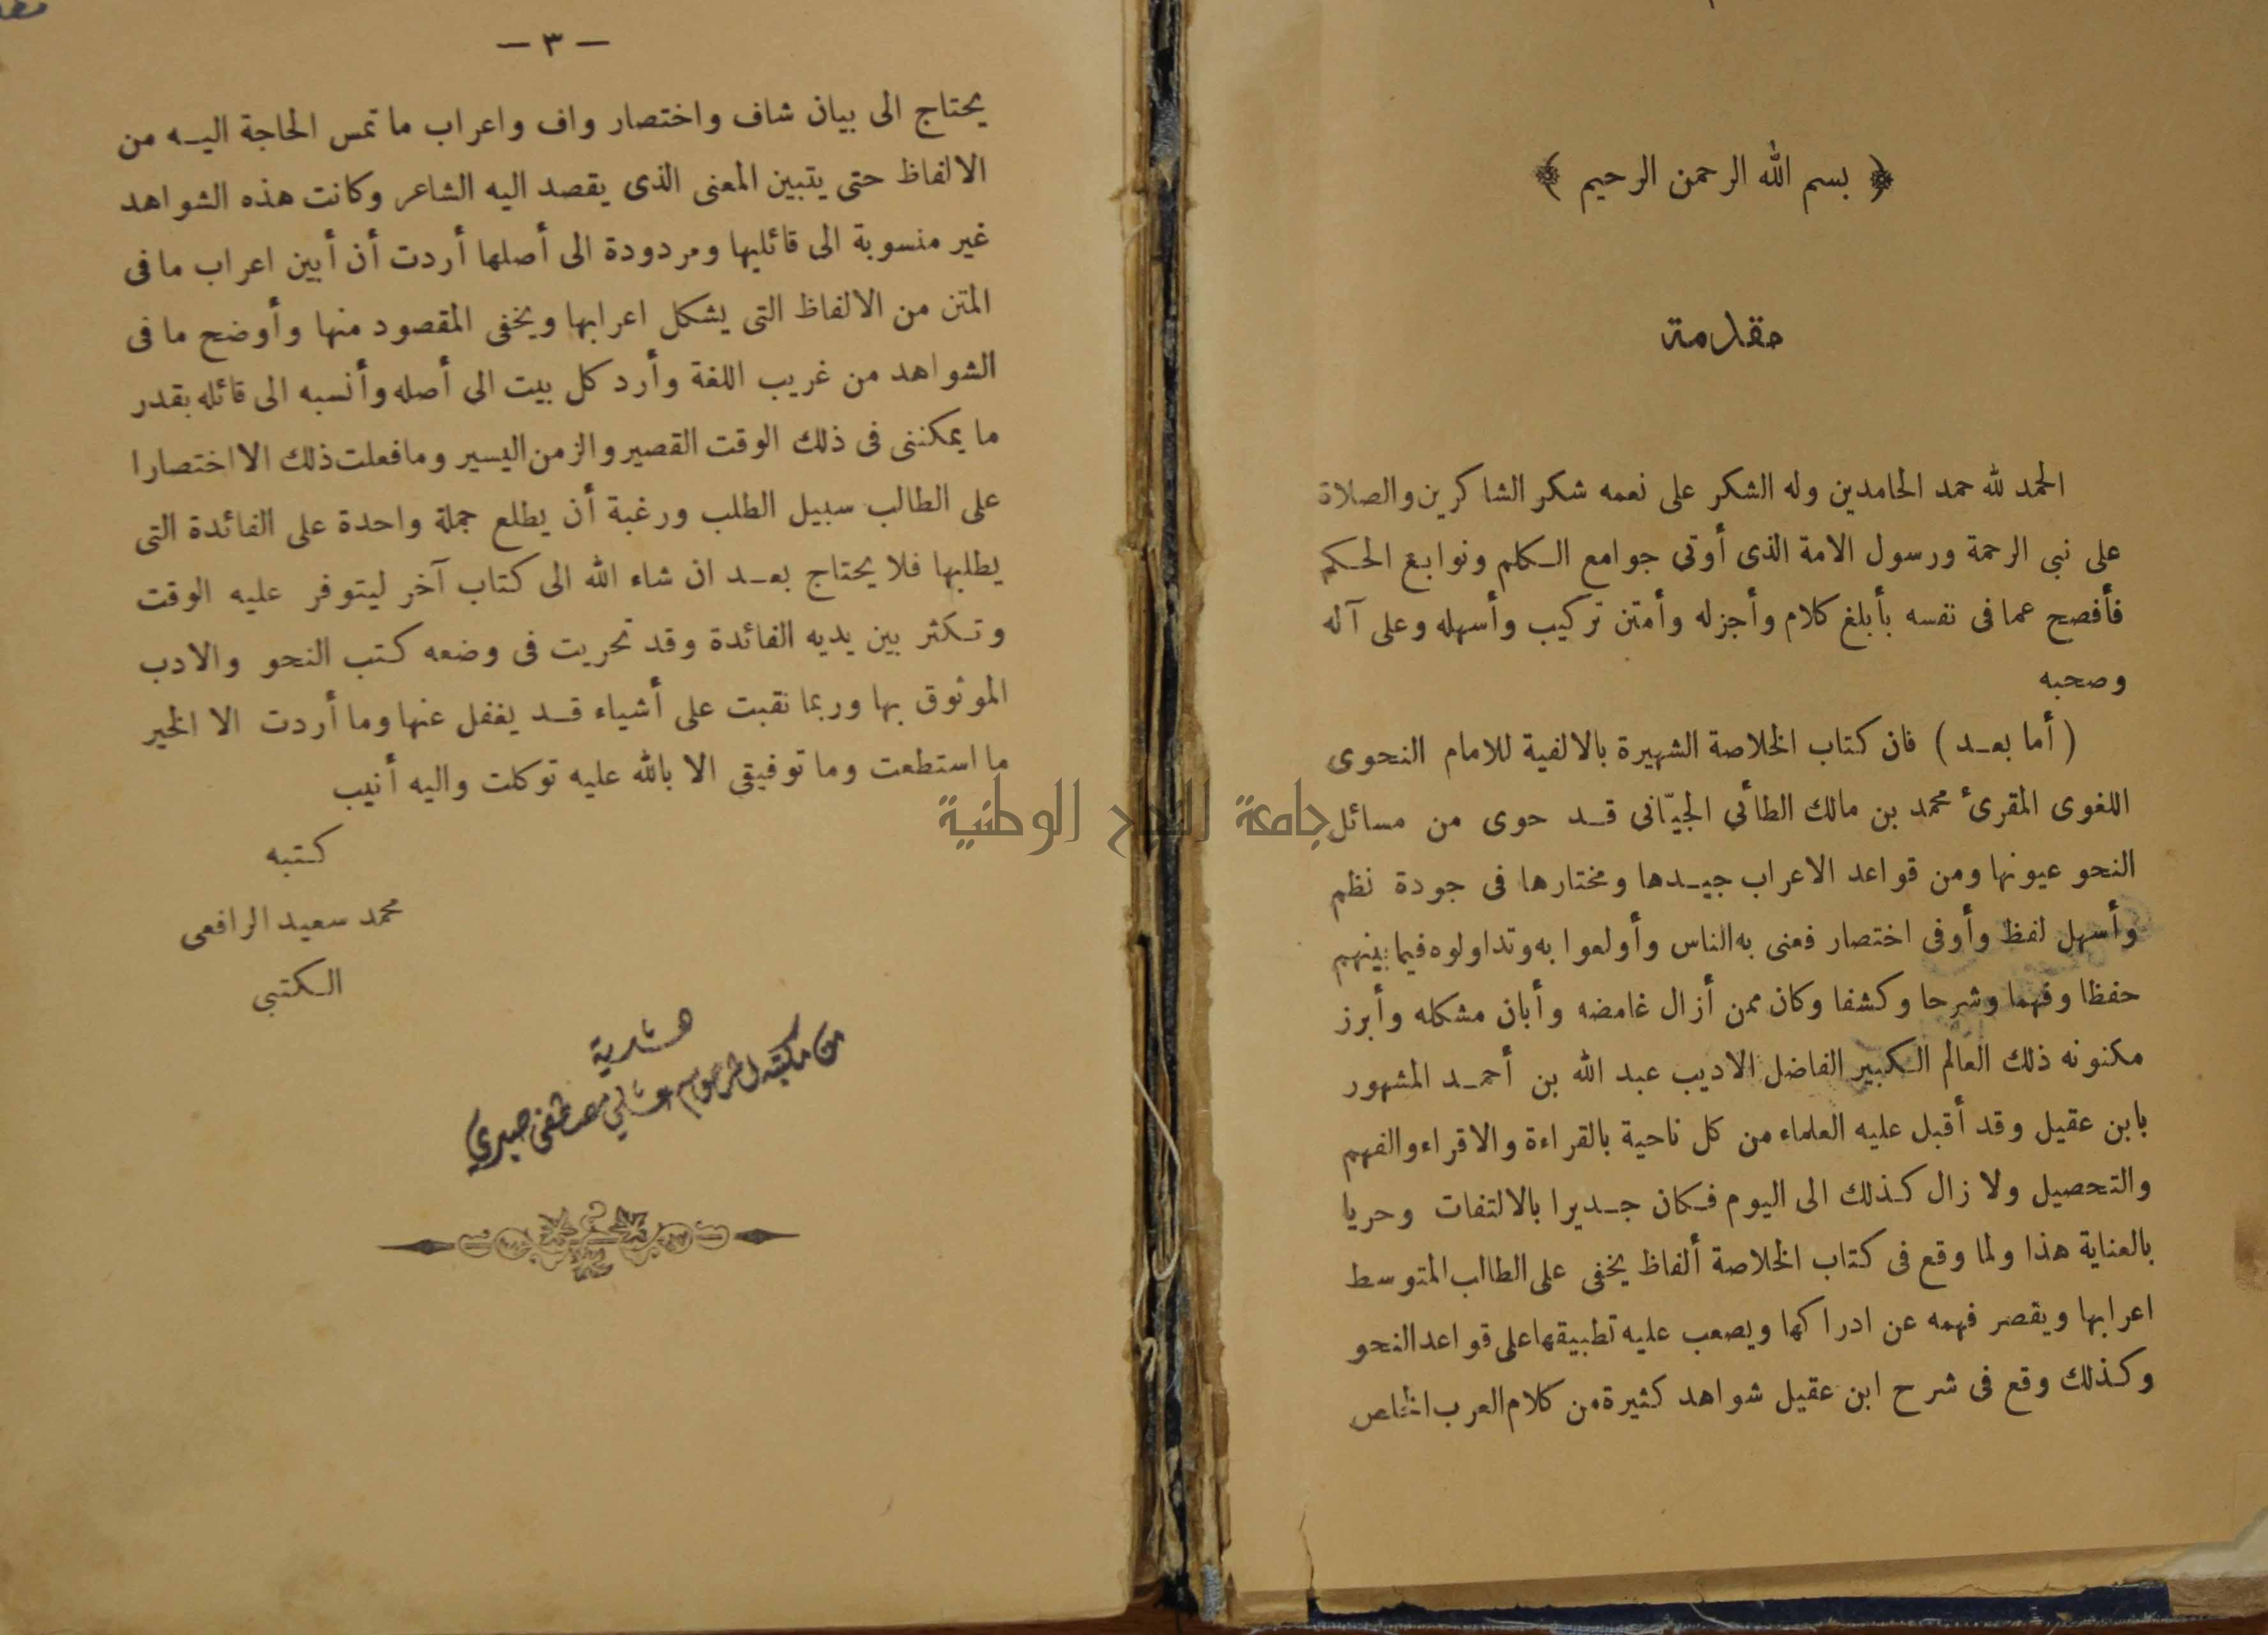 ﴿ بسم الله الرحمن الرحيم ﴾
مقدمة
الحمد لله حمد الحامدين وله الشكر على نعمه شكر الشاكرين والصلاة
على نبى الرحمة ورسول الامة الذى أوتى جوامع الكلم ونوابغ الحكم
فأفصح عما فى نفسه بأبلغ كلام وأجزله وأمتن تركيب وأسهله وعلى آله
وصحبه
( أما بعد ) فان كتاب الخلاصة الشهيرة بالالفية للامام النحوى
اللغوى المقرئ محمد بن مالك الطائي الجيّانى قد حوى من مسائل
النحو عيونها ومن قواعد الاعراب جيدها ومختارها فى جودة نظم
وأسهل لفظ وأوفى اختصار فعنى به الناس وأولعوا به وتداولوه فيما بينهم
حفظا وفهما وشرحا وكشفا وكان ممن أزال غامضه وأبان مشكله وأبرز
مكنونه ذلك العالم الكبير الفاضل الاديب عبد الله بن أحمد المشهور
بابن عقيل وقد أقبل عليه العلماء من كل ناحية بالقراءة والاقراء والفهم
والتحصيل ولا زال كذلك الى اليوم فكان جديرا بالالتفات وحريا
بالعناية هذا ولما وقع فى كتاب الخلاصة ألفاظ يخفى على الطالب المتوسط
اعرابها ويقصر فهمه عن ادراكها ويصعب عليه تطبيقها على قواعد النحو
وكذلك وقع فى شرح ابن عقيل شواهد كثيرة من كلام العرب الخلص
— ٣ —
يحتاج الى بيان شاف واختصار واف واعراب ما تمس الحاجة اليه من
الالفاظ حتى يتبين المعنى الذى يقصد اليه الشاعر وكانت هذه الشواهد
غير منسوبة الى قائليها ومردودة الى أصلها أردت أن أبين اعراب ما فى
المتن من الالفاظ التى يشكل اعرابها ويخفى المقصود منها وأوضح ما فى
الشواهد من غريب اللغة وأرد كل بيت الى أصله وأنسبه الى قائله بقدر
ما يمكننى فى ذلك الوقت القصير والزمن اليسير وما فعلت ذلك الا اختصارا
على الطالب سبيل الطلب ورغبة أن يطلع جملة واحدة على الفائدة التى
يطلبها فلا يحتاج بعد ان شاء الله الى كتاب آخر ليتوفر عليه الوقت
وتكثر بين يديه الفائدة وقد تحريت فى وضعه كتب النحو والادب
الموثوق بها وربما نقبت على أشياء قد يغفل عنها وما أردت الا الخير
ما استطعت وما توفيقى الا بالله عليه توكلت واليه أنيب
كتبه
محمد سعيد الرافعى
الكتبى
هدية
من مكتبة المرحوم مصطفى صبري
جامعة النجاح الوطنية